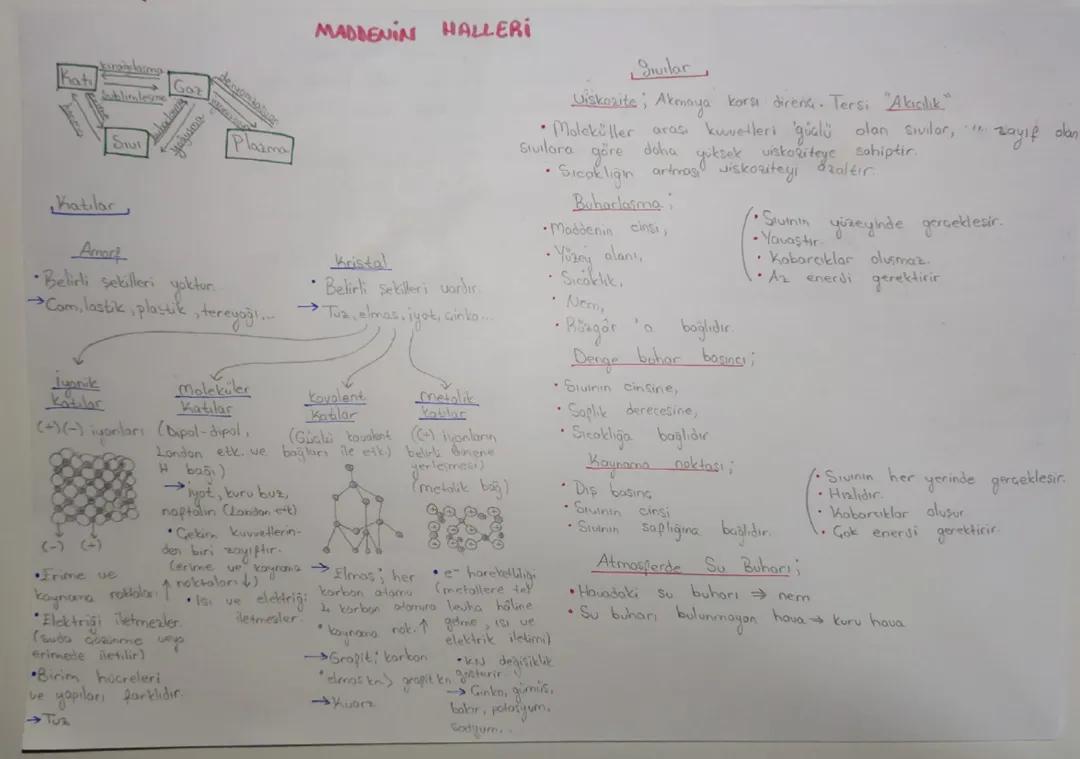 MADDENİN HALLERİ
Katı
kırağılaşma
Süblimleşme
Gaz
deiyonizasyon
iyonizasyon
erime
donma
Sıvı
buharlaşma
yoğuşma
Plazma
Katılar
Amorf
• Belirli şekilleri yoktur.
→ Cam, lastik, plastik, tereyağı,...
Kristal
• Belirli şekilleri vardır.
→ Tuz, elmas, iyot, çinko...
İyonik
Katılar
(+)(-) iyonları
(-) (+)
• Erime ve
kaynama noktaları ↑
• Elektriği iletmezler.
(suda çözünme veya
erimede iletilir)
• Birim hücreleri
ve yapıları farklıdır.
→ Tuz
Moleküler
Katılar
(Dipol-dipol,
London etk. ve
H bağı)
→ iyot, kuru buz,
naftalin (London etk)
• Çekim kuvvetlerin-
den biri zayıftır.
(erime ve kaynama
noktaları ↓)
• Isı ve elektriği
iletmezler.
Kovalent
Katılar
(Güçlü kovalent
bağları ile etk)
→ Elmas; her
karbon atomu
4 karbon atomuna
• kaynama nok. ↑
→ Grafit; karbon
• elmas kn > grafit kn
→ Kuarz
Metalik
katılar
((+) iyonların
belirli düzene
yerleşmesi)
(metalik bağ)
• e⁻ hareketliliği
(metallere tel
levha hâline
gelme, ısı ve
elektrik iletimi)
• KN değişiklik
gösterir.
→ Çinko, gümüş,
bakır, potasyum,
sodyum...
Sıvılar
Viskozite; Akmaya karşı direnç. Tersi "Akıcılık"
• Moleküller arası kuvvetleri güçlü olan sıvılar, "" zayıf olan
sıvılara göre daha yüksek viskoziteye sahiptir.
• Sıcaklığın artması viskoziteyi azaltır.
Buharlaşma;
• Maddenin cinsi,
• Yüzey alanı,
• Sıcaklık,
• Nem,
• Rüzgâr 'a bağlıdır.
• Sıvının yüzeyinde gerçekleşir.
• Yavaştır.
• Kabarcıklar oluşmaz.
• Az enerji gerektirir
Denge buhar basıncı;
• Sıvının cinsine,
• Saflık derecesine,
• Sıcaklığa bağlıdır
Kaynama noktası;
• Dış basınç
• Sıvının cinsi
• Sıvının saflığına bağlıdır.
• Sıvının her yerinde gerçekleşir.
• Hızlıdır.
• Kabarcıklar oluşur.
• Çok enerji gerektirir.
Atmosferde Su Buharı;
• Havadaki su buharı ⇒ nem
• Su buharı bulunmayan hava ⇒ kuru hava